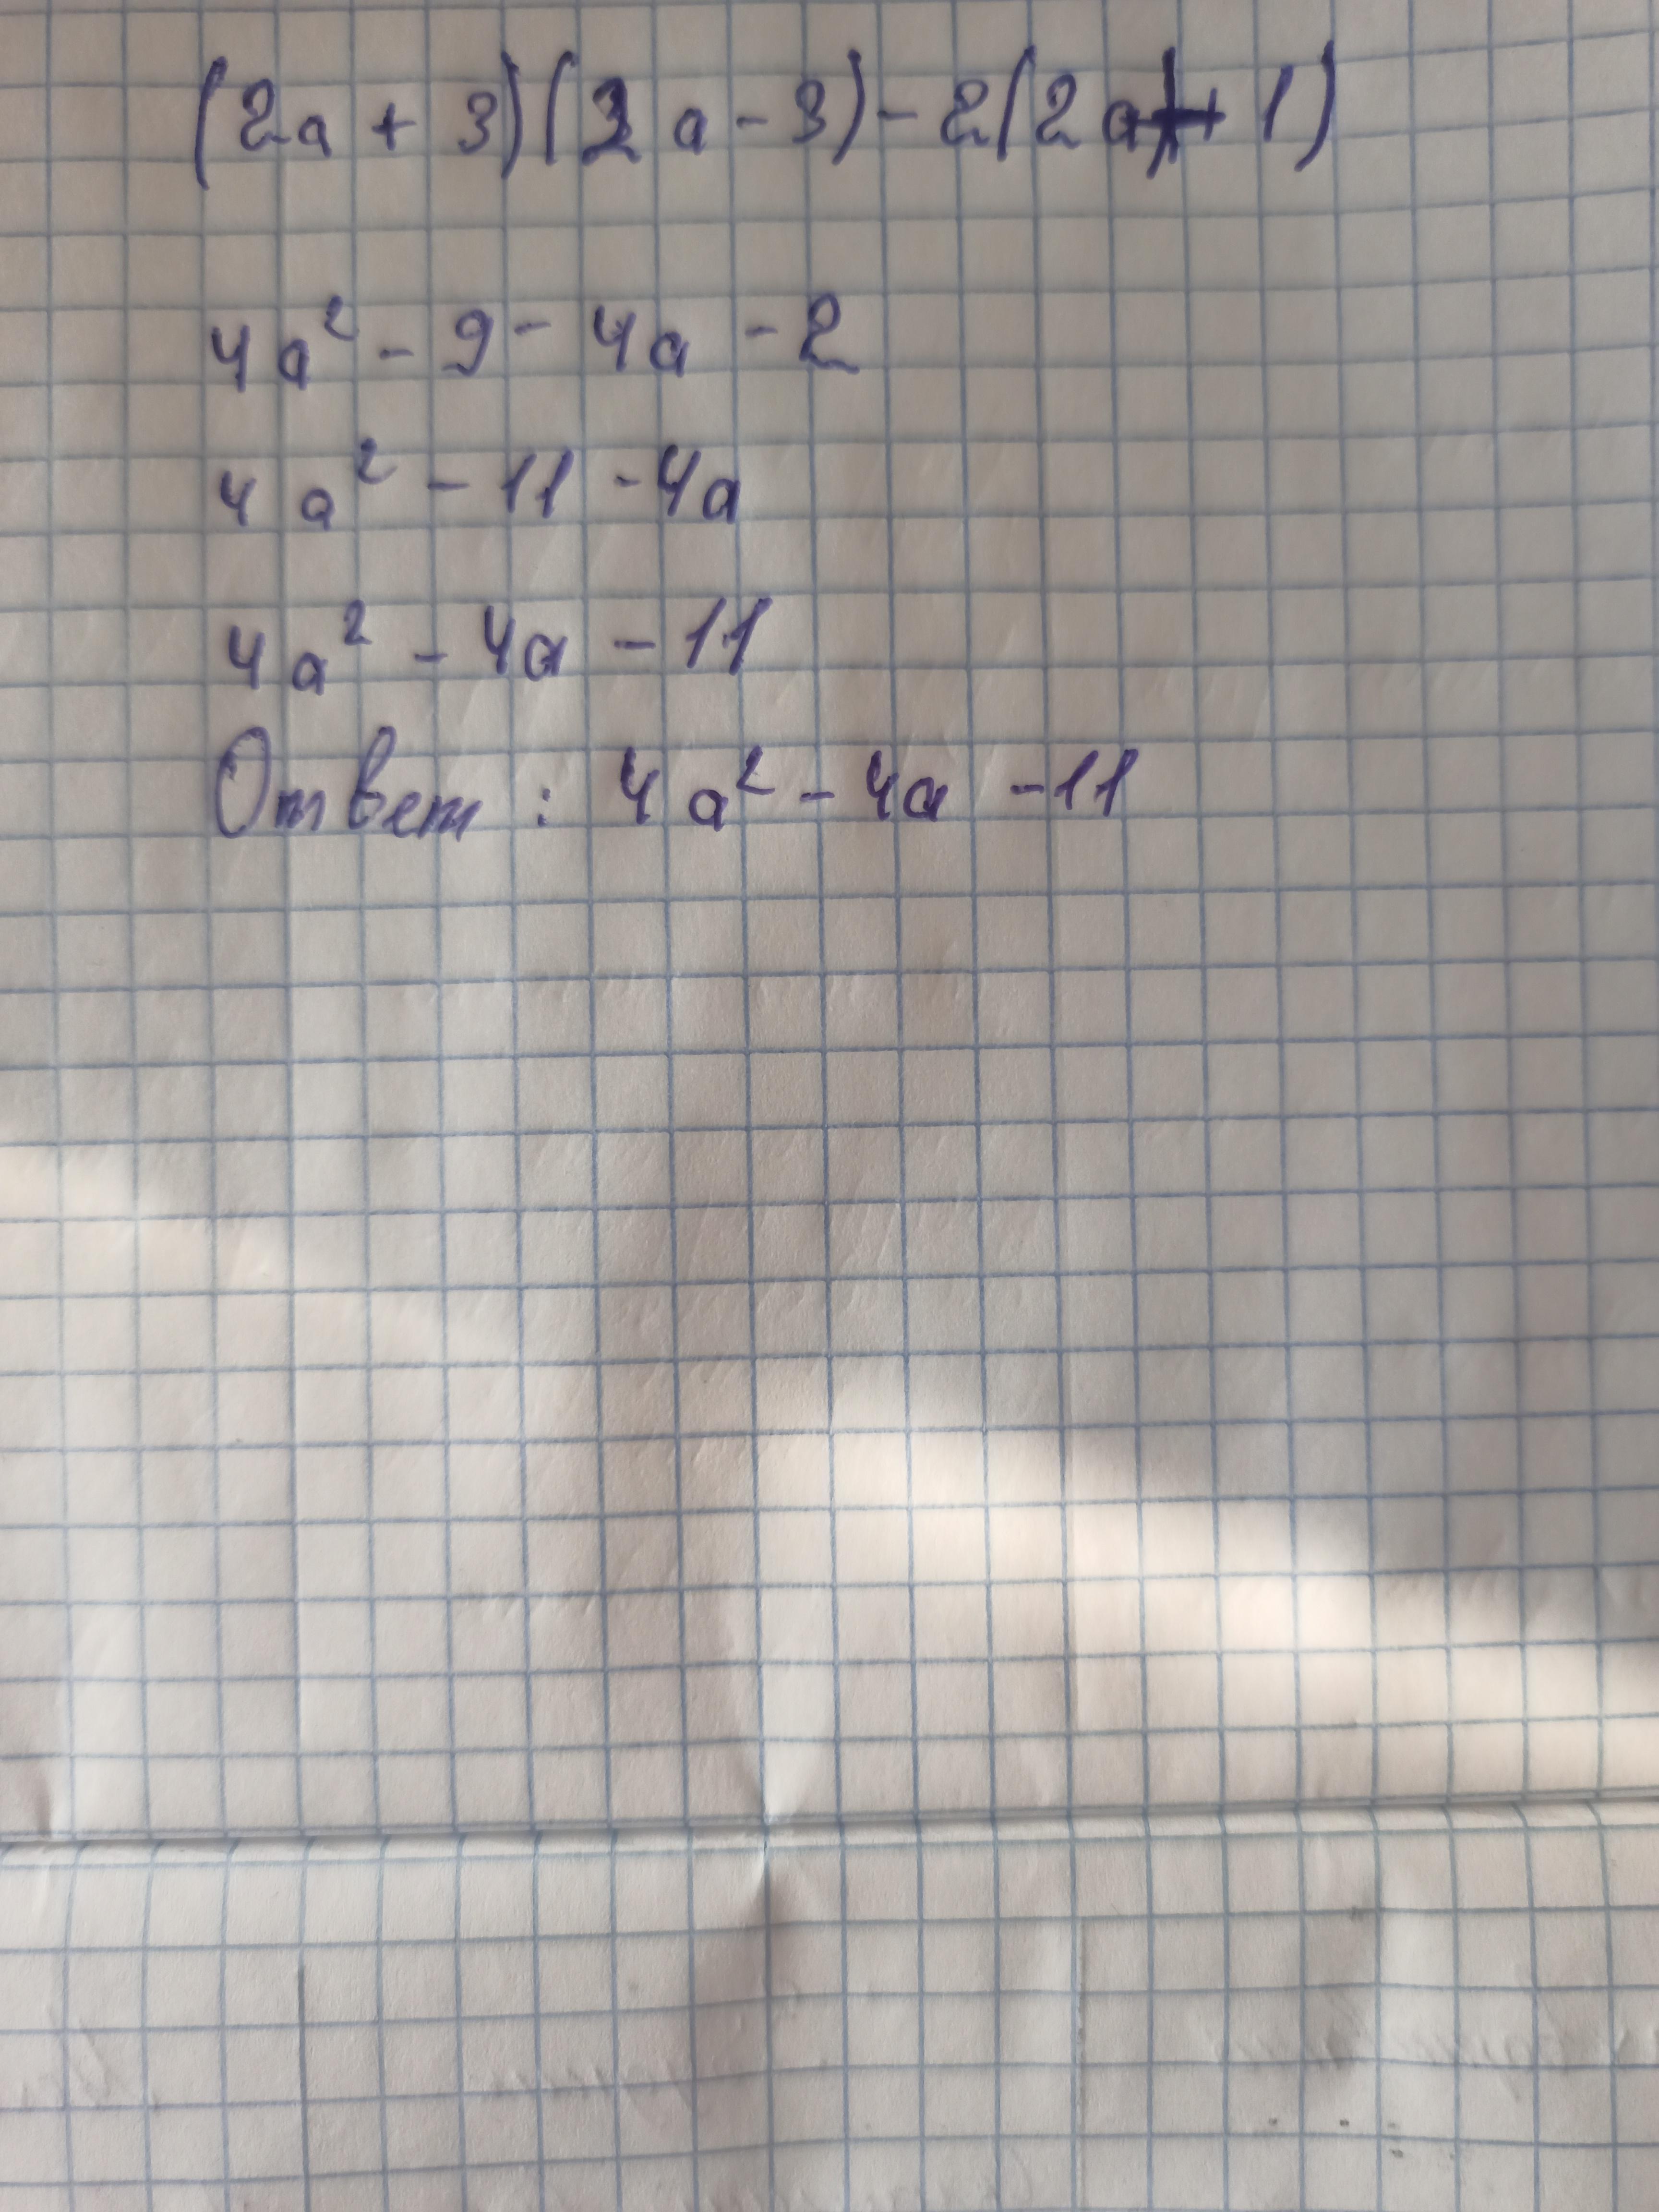 (2a + 3)(2a - 3) - 2(2a + 1)
4a² - 9 - 4a - 2
4a² - 11 - 4a
4a² - 4a - 11
Ответ: 4a² - 4a - 11